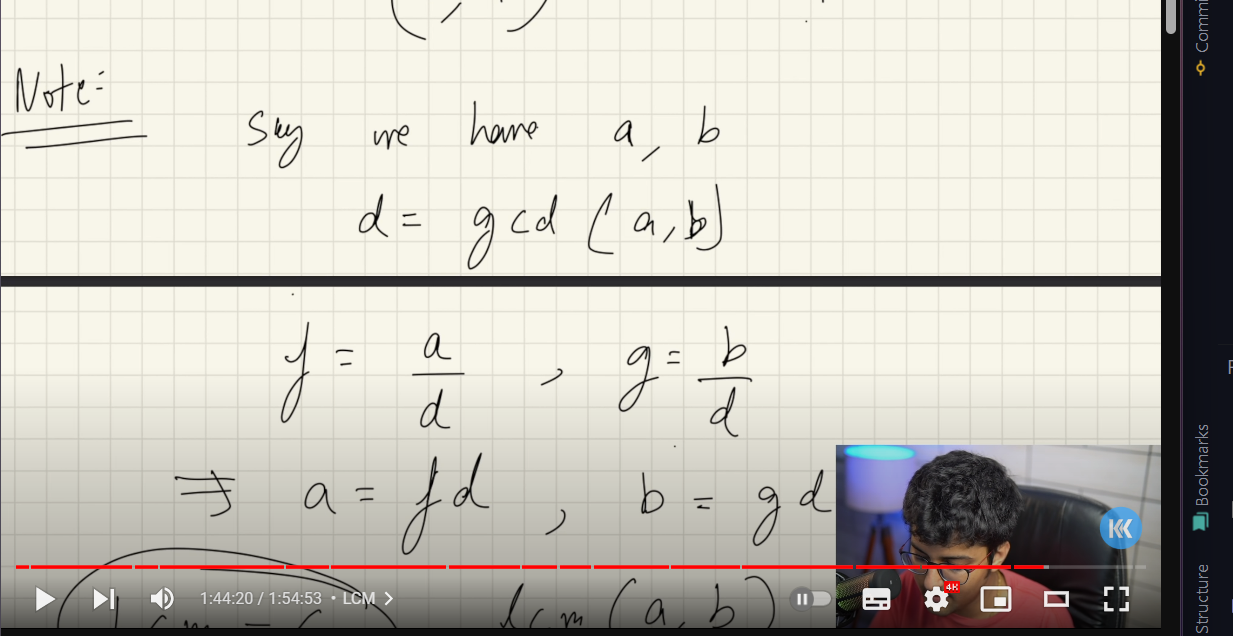 Commi
Note:
Say we have a, b
d = gcd (a, b)
f = a/d , g = b/d
⇒ a = fd , b = gd
lcm (a, b)
1:44:20 / 1:54:53 • LCM >
4K
Bookmarks
Structure